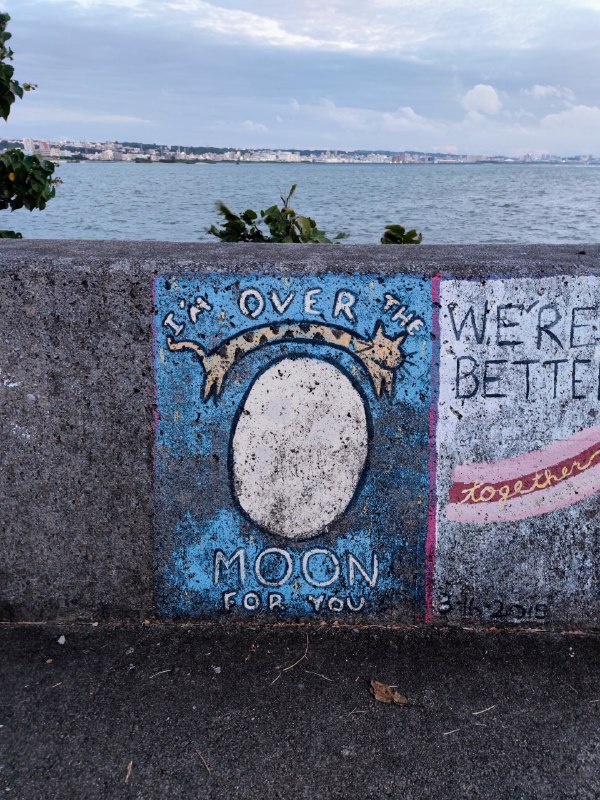 I'M OVER THE
MOON
FOR YOU
WE'RE
BETTE
together
3-14-2015